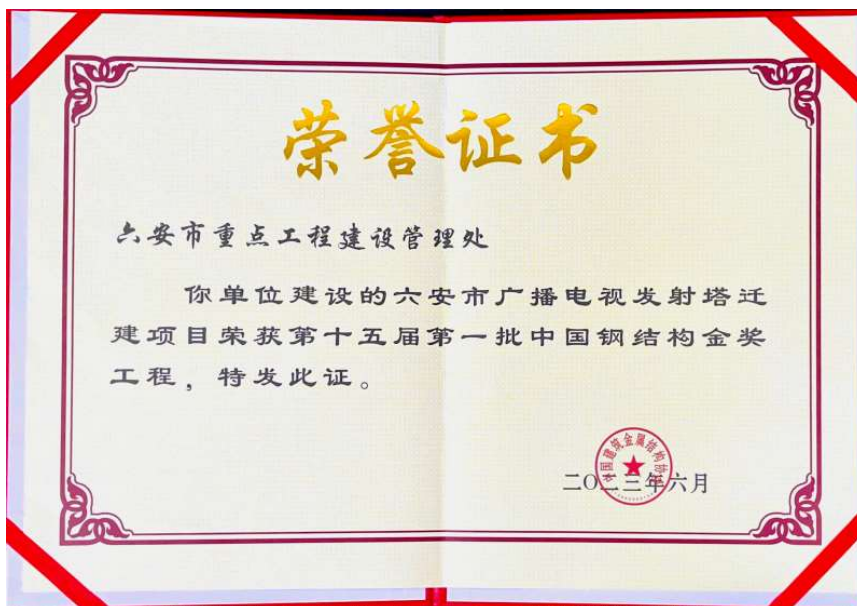 荣誉证书
六安市重点工程建设管理处
你单位建设的六安市广播电视发射塔迁
建项目荣获第十五届第一批中国钢结构金奖
工程，特发此证。
中国建筑金属结构协会
二〇二三年六月